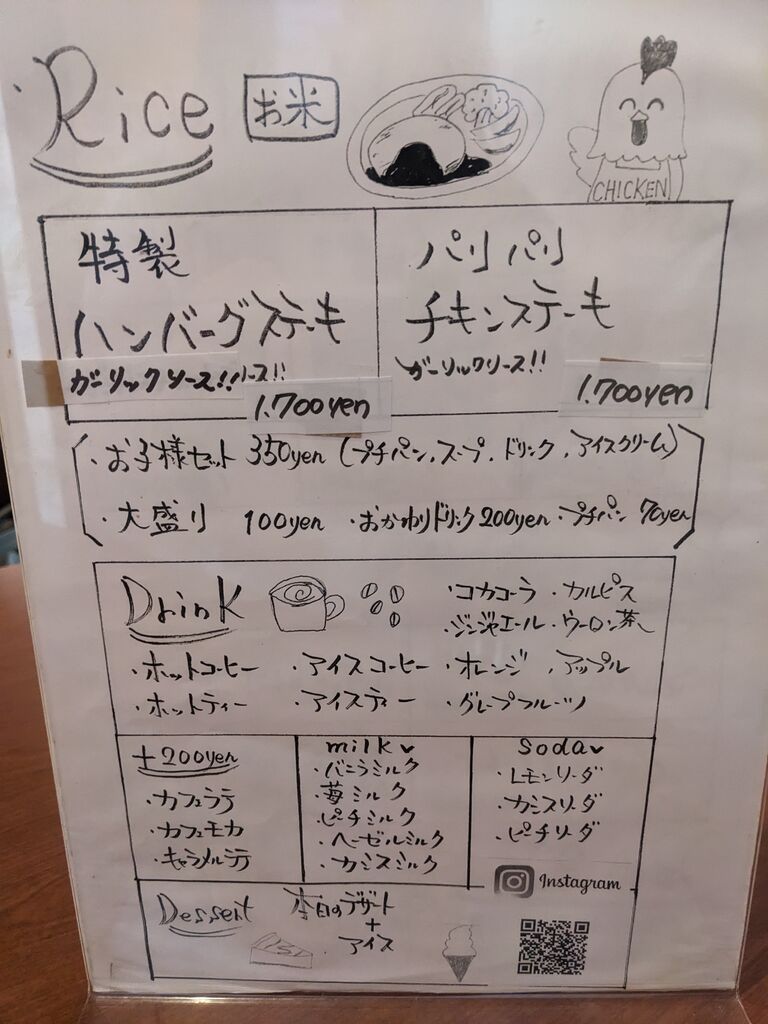 Rice お米
CHICKEN
特製
ハンバーグステーキ
ガーリックソース!!ソース!!
1.700yen
パリパリ
チキンステーキ
ガーリックソース!!
1.700yen
・お子様セット 350yen (プチパン、スープ、ドリンク、アイスクリーム)
・大盛り 100yen ・おかわりドリンク200yen ・プチパン 70yen
Drink
・コカコーラ ・カルピス
・ジンジャエール ・ウーロン茶
・ホットコーヒー ・アイスコーヒー ・オレンジ ・アップル
・ホットティー ・アイスティー ・グレープフルーツ
+200yen
・カフェラテ
・カフェモカ
・キャラメルラテ
milk
・バニラミルク
・苺ミルク
・ピーチミルク
・ヘーゼルミルク
・カシスミルク
soda
・レモンソーダ
・カシスソーダ
・ピーチソーダ
Instagram
Dessert
本日のデザート
+
アイス